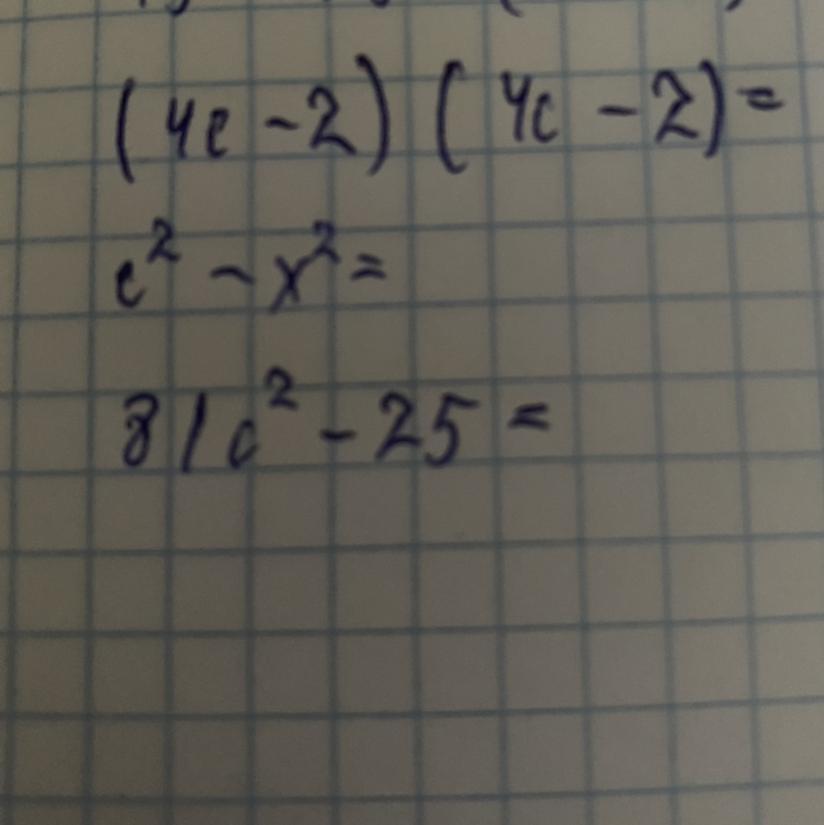 (4c - 2) (4c - 2) =
c² - x² =
81c² - 25 =